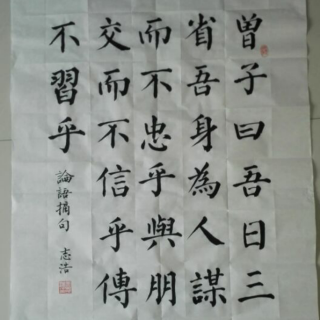 曾子曰吾日三
省吾身為人謀
而不忠乎與朋
交而不信乎傳
不習乎
論語摘句 志浩